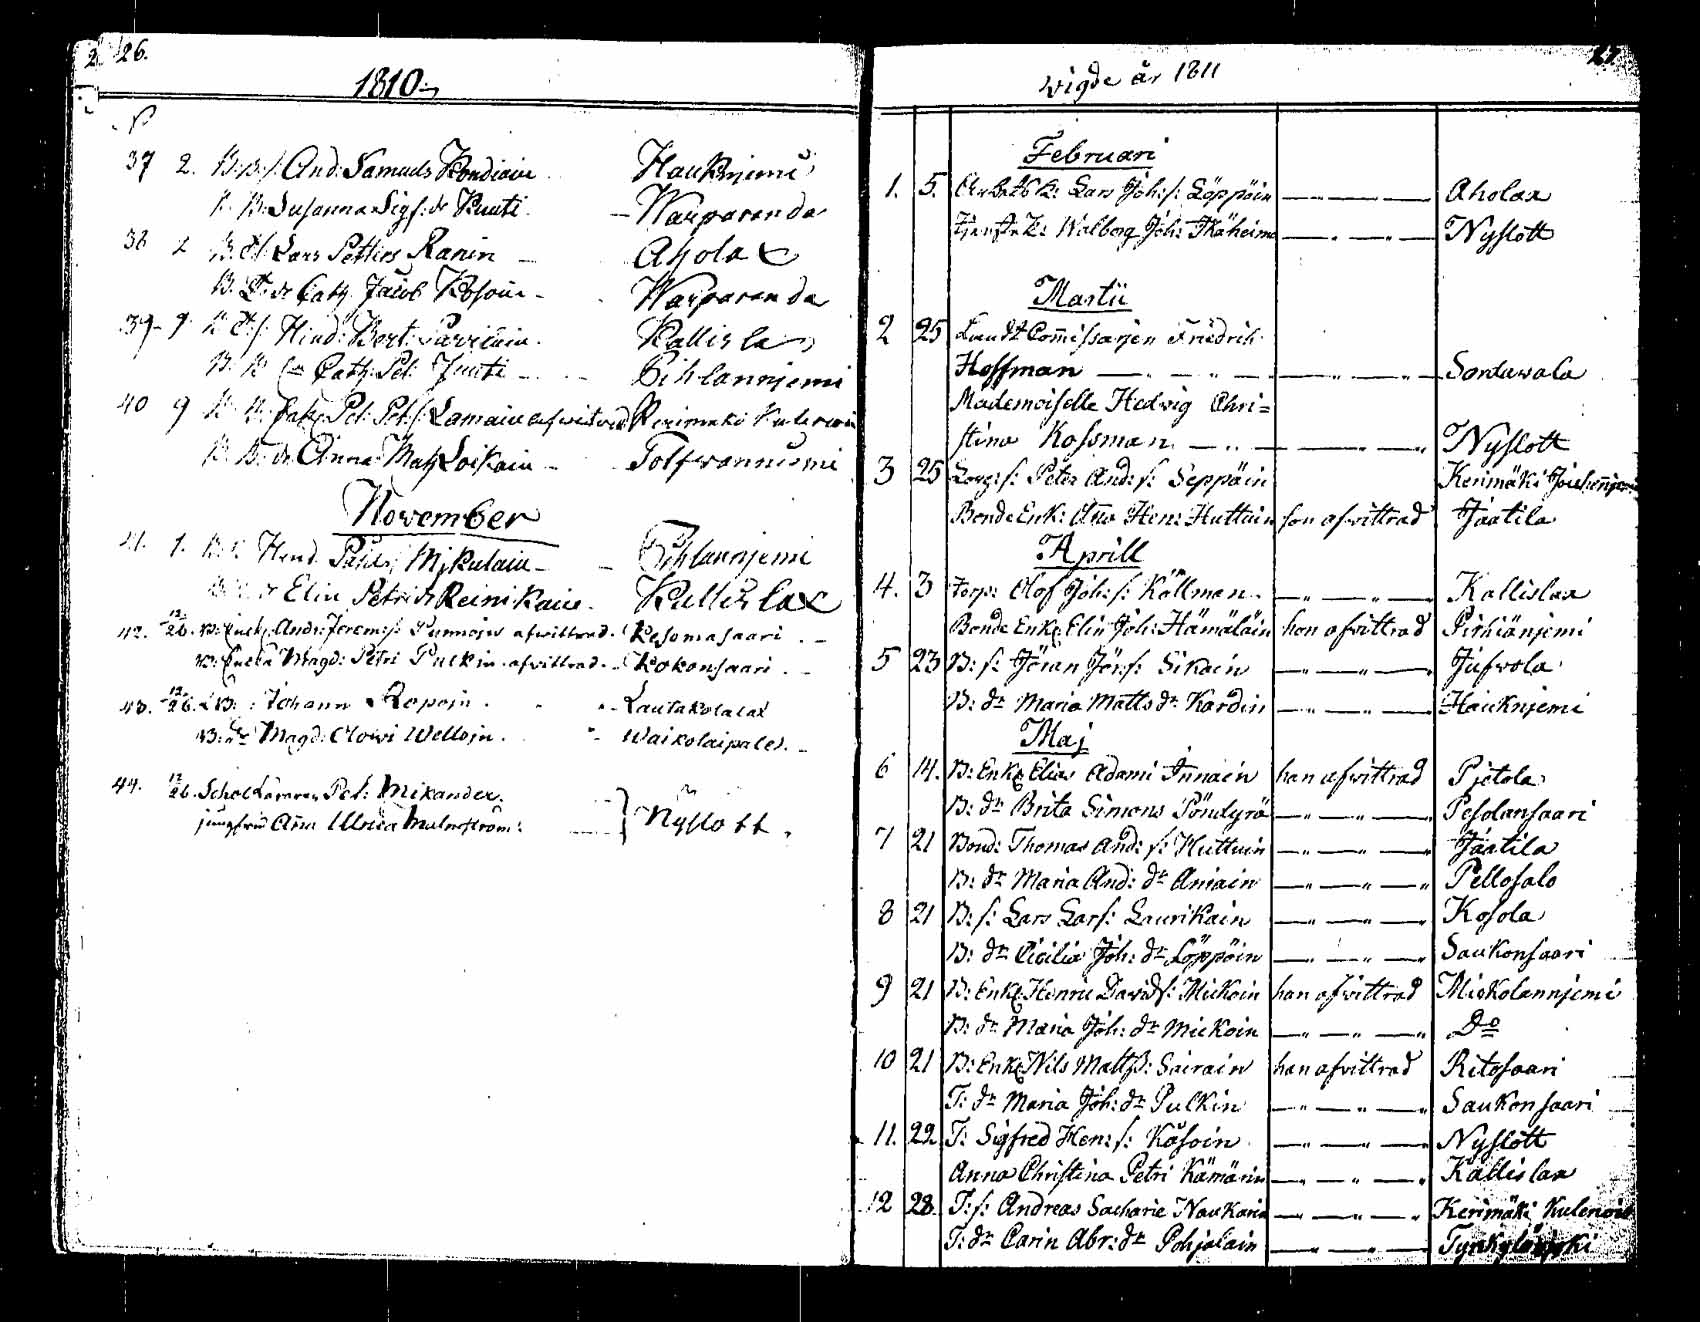 26.
1810
37 2. B: B: s: And: Samuels Kondiain Hauknjemi
B: Susanna Sigf: dr Kunti Warparanda
38 2 Lars Petters Ranin Aholax
B. dr Cath. Jacob Kosoin Warparanda
39 9 Hind: Bert: Parviain Kallislax
Cath: Pet: Juuti Pihlannjemi
40 9 Pet: Pet: s: Lamain afwittrad Kerimäki Kulenoin
B: dr Anna Matz Loikain Tolfwanniemi
November
41. 1. Hend Påhls Mikulain Pihlannjemi
dr Elin Petri dr Reinikain Kallislax
42. 12/26. B: Enck: And: Jerem: s: Punnoin afwittrad. Kesomasaari
B: Encka Magd: Petri Pulkin afwittrad. Kokonsaari
43. 12/26. Johann Ropoin Lautakotalax
B: dr Magd: Olowi Welloin Waikolaipale
44. 12/26. Schol Läraren Pet: Mikander
jungfrun Anna Ulrica Malmström Nyslott
27
wigde år 1811
Februari
1. 5. Arbetsk: Lars Joh: s: Löppöin Aholax
tjenstek: Walborg Joh: Ikäheimo Nyslott
Martii
2 25 Landt Commissarjen Friedrih
Hoffman Sordawala
Mademoiselle Hedvig Chri=
stina Kossman Nyslott
3 25 Torp: s: Peter And: s: Seppöin Kerimäki
Bonde Enk: Ana Hen: Huttuin hon afvittrad Jäätila
Aprill
4. 3 Torp: Olof Joh: s: Källman Kallislax
Bonde Enk: Elin Joh: Hämäläin hon afvittrad Pihlänjemi
5 23 B: s: Jöran Jör: s: Sikain Jufvola
B: dr Maria Matts dr Kardin Hauknjemi
Maj
6 14. B: Enk: Elias Adami Innain han afvittrad Pjetola
B: dr Brita Simons Pöndyrä Pesolansaari
7 21 Bond: Thomas And: s: Huttuin Jäätila
B: dr Maria And: dr Aniain Pellosalo
8 21 B: s: Lars Lars: Laurikain Kosola
B: dr Cicilia Joh: dr Löppöin Saukonsaari
9 21 B: Enk: Henric Davids: Mickoin han afvittrad Mickolannjemi
B: dr Maria Joh: dr Mickoin Do
10 21 B: Enk: Nils Matts: Sairain han afvittrad Ritosaari
T: dr Maria Joh: dr Pulkin Saukonsaari
11. 22 T: Sigfred Hen: s: Kosoin Nyslott
Anna Christina Petri Kämärin Kallislax
12 28. T: s: Andreas Sacharie Naukarin Kerimäki Kulenoin
T: dr Carin Abr: dr Pohjalain